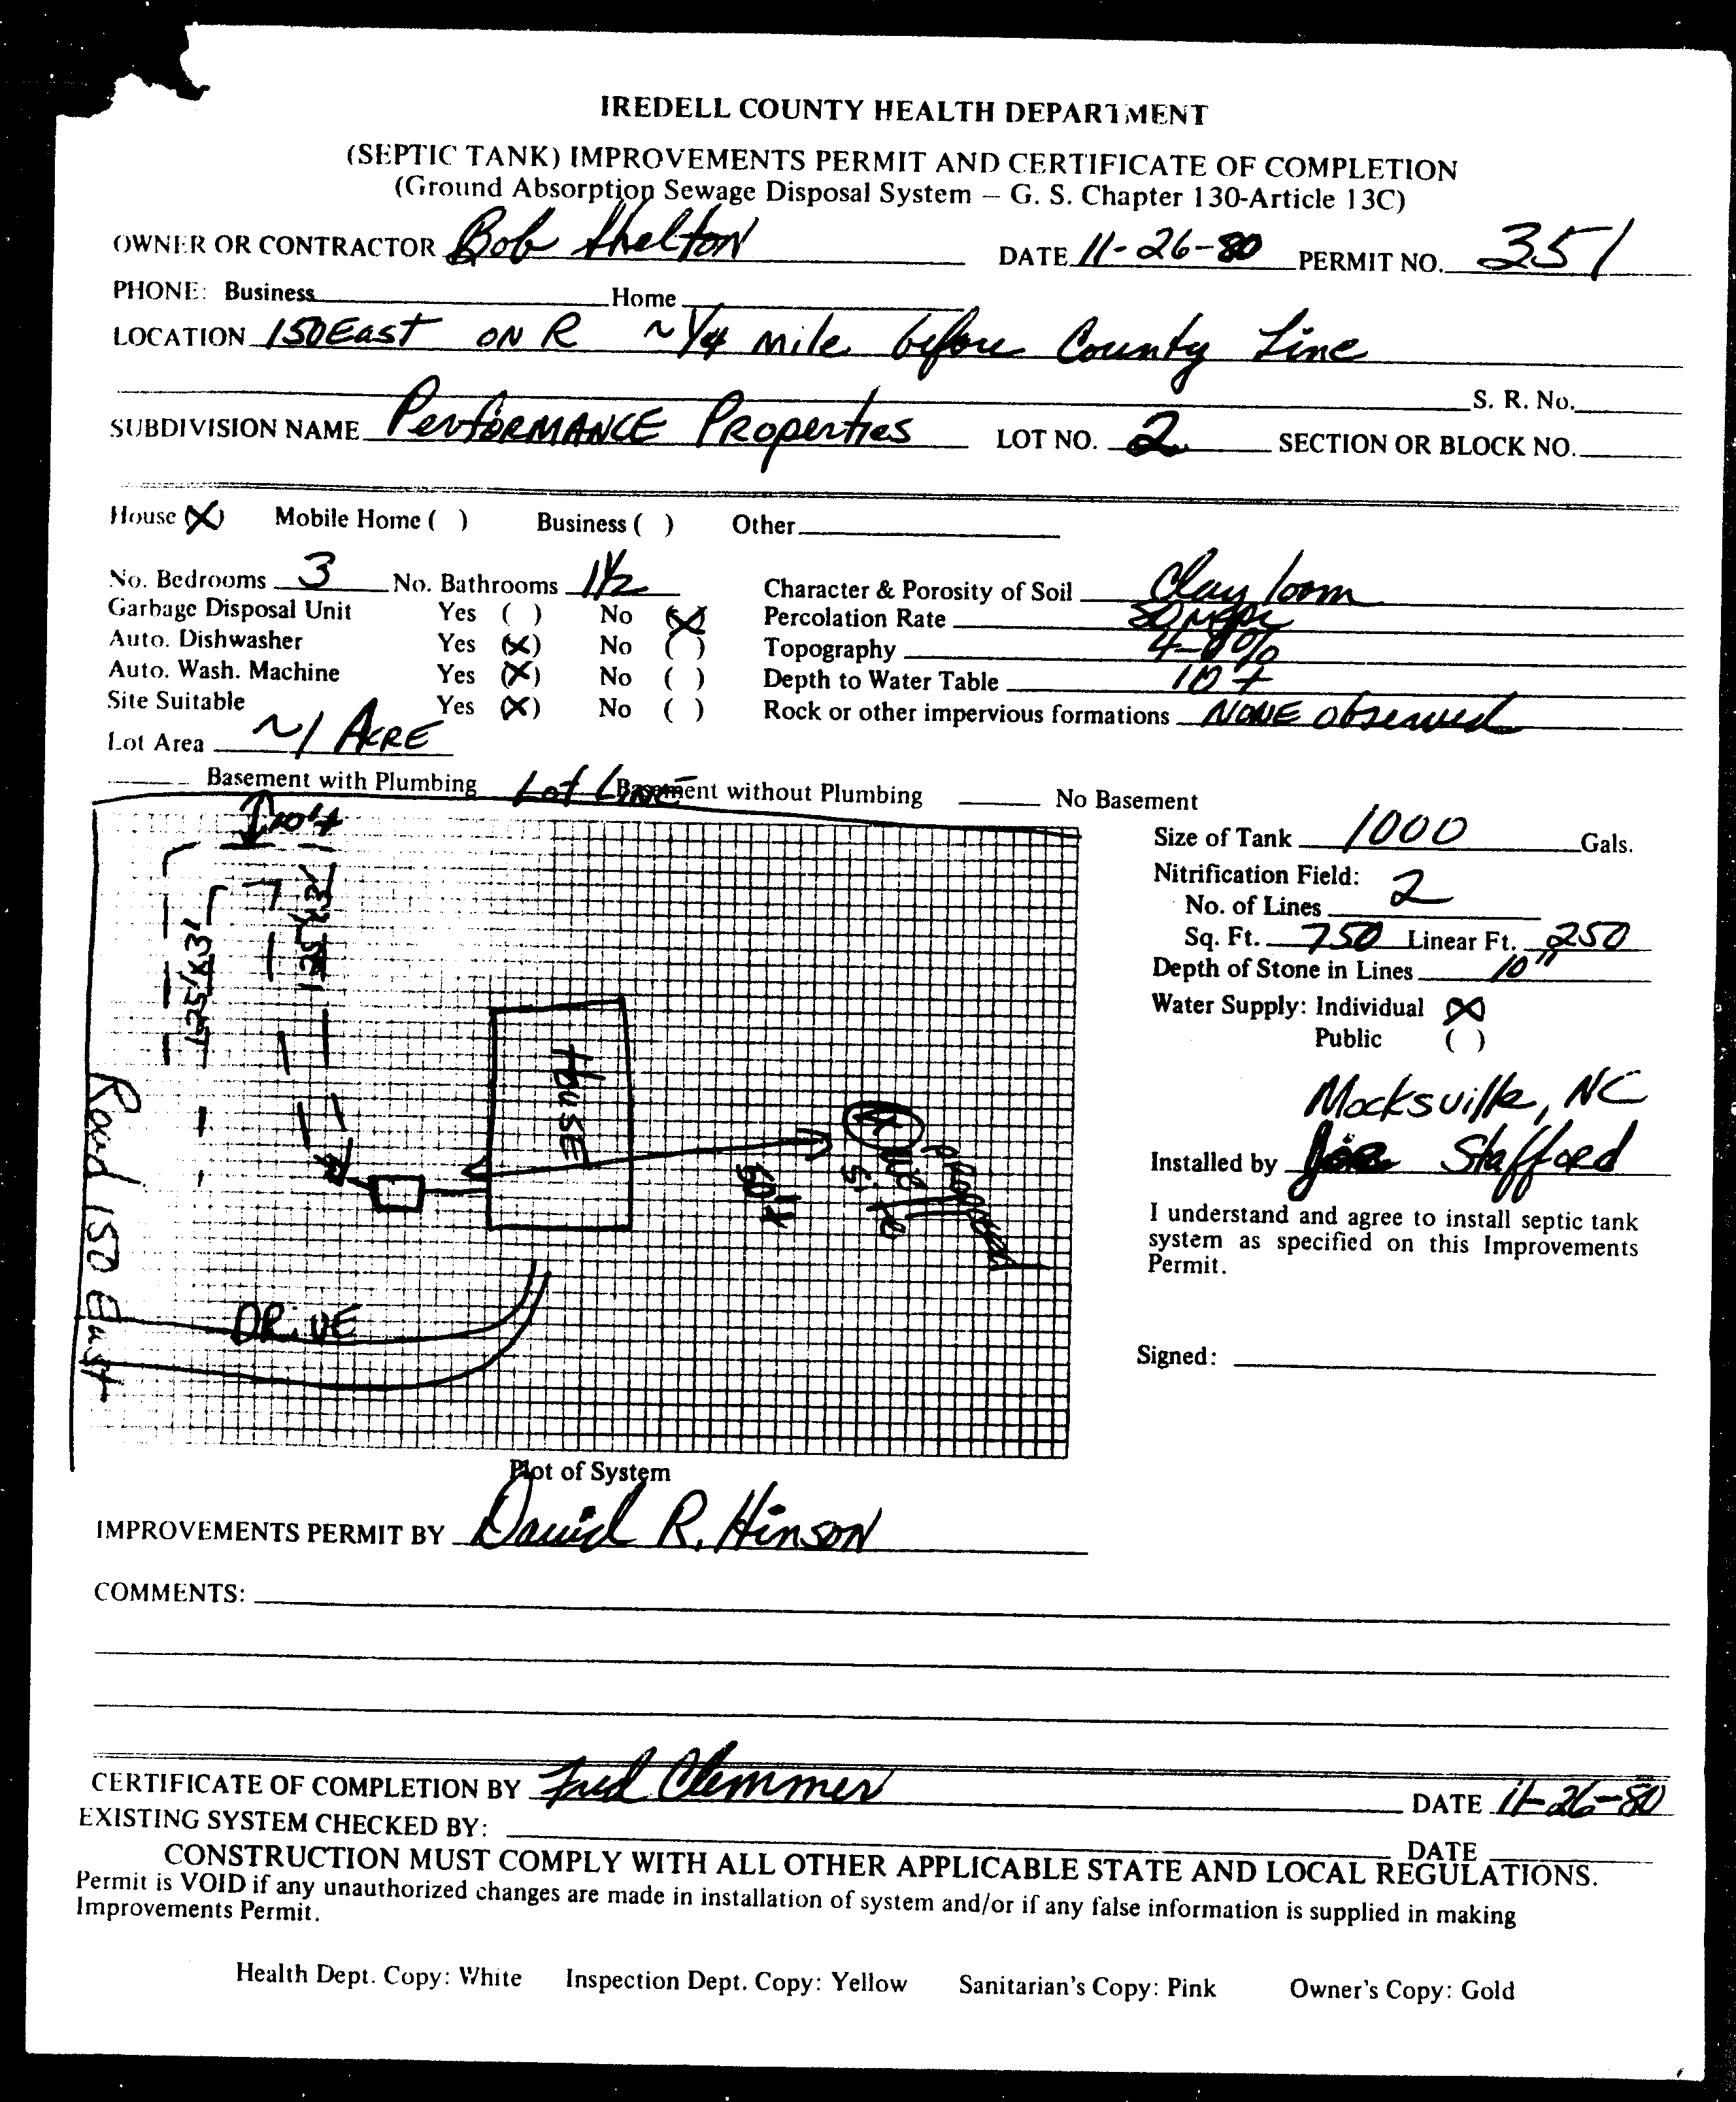 IREDELL COUNTY HEALTH DEPARTMENT
(SEPTIC TANK) IMPROVEMENTS PERMIT AND CERTIFICATE OF COMPLETION
(Ground Absorption Sewage Disposal System – G. S. Chapter 130-Article 13C)
OWNER OR CONTRACTOR Bob Shelton DATE 11-26-80 PERMIT NO. 351
PHONE: Business Home
LOCATION 150 East ON R ~ 1/4 mile before County Line
S. R. No.
SUBDIVISION NAME Performance Properties LOT NO. 2 SECTION OR BLOCK NO.
House (X) Mobile Home ( ) Business ( ) Other
No. Bedrooms 3 No. Bathrooms 1 1/2 Character & Porosity of Soil Clay loom
Garbage Disposal Unit Yes ( ) No (X) Percolation Rate
Auto. Dishwasher Yes (X) No ( ) Topography
Auto. Wash. Machine Yes (X) No ( ) Depth to Water Table 10 +
Site Suitable Yes (X) No ( ) Rock or other impervious formations NONE observed
Lot Area ~1 ACRE
Basement with Plumbing Basement without Plumbing No Basement
Lot LINE
10'+
125'x3'
125'x3'
House
60'+
proposed
well
Site
Road 150 East
DRIVE
Size of Tank 1000 Gals.
Nitrification Field:
No. of Lines 2
Sq. Ft. 750 Linear Ft. 250
Depth of Stone in Lines 10"
Water Supply: Individual (X)
Public ( )
Mocksville, NC
Installed by Stafford
I understand and agree to install septic tank
system as specified on this Improvements
Permit.
Signed:
Plot of System
IMPROVEMENTS PERMIT BY David R. Hinson
COMMENTS:
CERTIFICATE OF COMPLETION BY Fred Clemmer DATE 11-26-80
EXISTING SYSTEM CHECKED BY: DATE
CONSTRUCTION MUST COMPLY WITH ALL OTHER APPLICABLE STATE AND LOCAL REGULATIONS.
Permit is VOID if any unauthorized changes are made in installation of system and/or if any false information is supplied in making
Improvements Permit.
Health Dept. Copy: White Inspection Dept. Copy: Yellow Sanitarian's Copy: Pink Owner's Copy: Gold